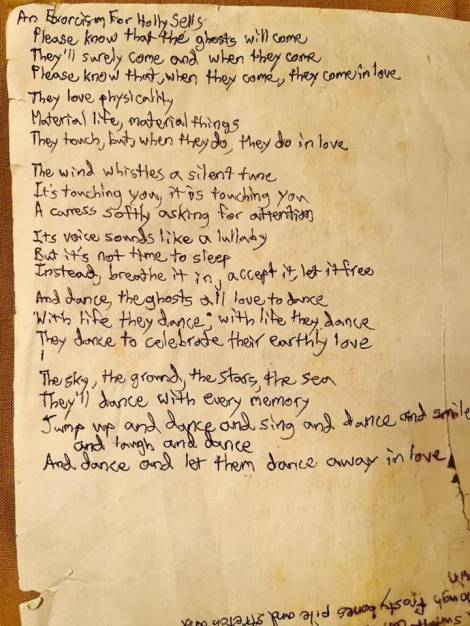 An Exorcism For Holly Sells
Please know that the ghosts will come
They'll surely come and when they come
Please know that, when they come, they come in love
They love physicality
Material life, material things
They touch, but, when they do, they do in love
The wind whistles a silent tune
It's touching you, it is touching you
A caress softly asking for attention
Its voice sounds like a lullaby
But it's not time to sleep
Instead, breathe it in, accept it, let it free
And dance, the ghosts all love to dance
With life they dance; with life they dance
They dance to celebrate their earthly love
The sky, the ground, the stars, the sea
They'll dance with every memory
Jump up and dance and sing and dance and smile
and laugh and dance
And dance and let them dance away in love
frosty bones pile and stretch